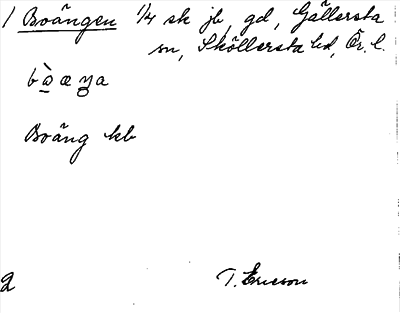 1 Boängen 1/4 sk jb, gd, Gällersta
sn, Sköllersta hd, Ör. l.
Boäng kb
2 T. Ericson